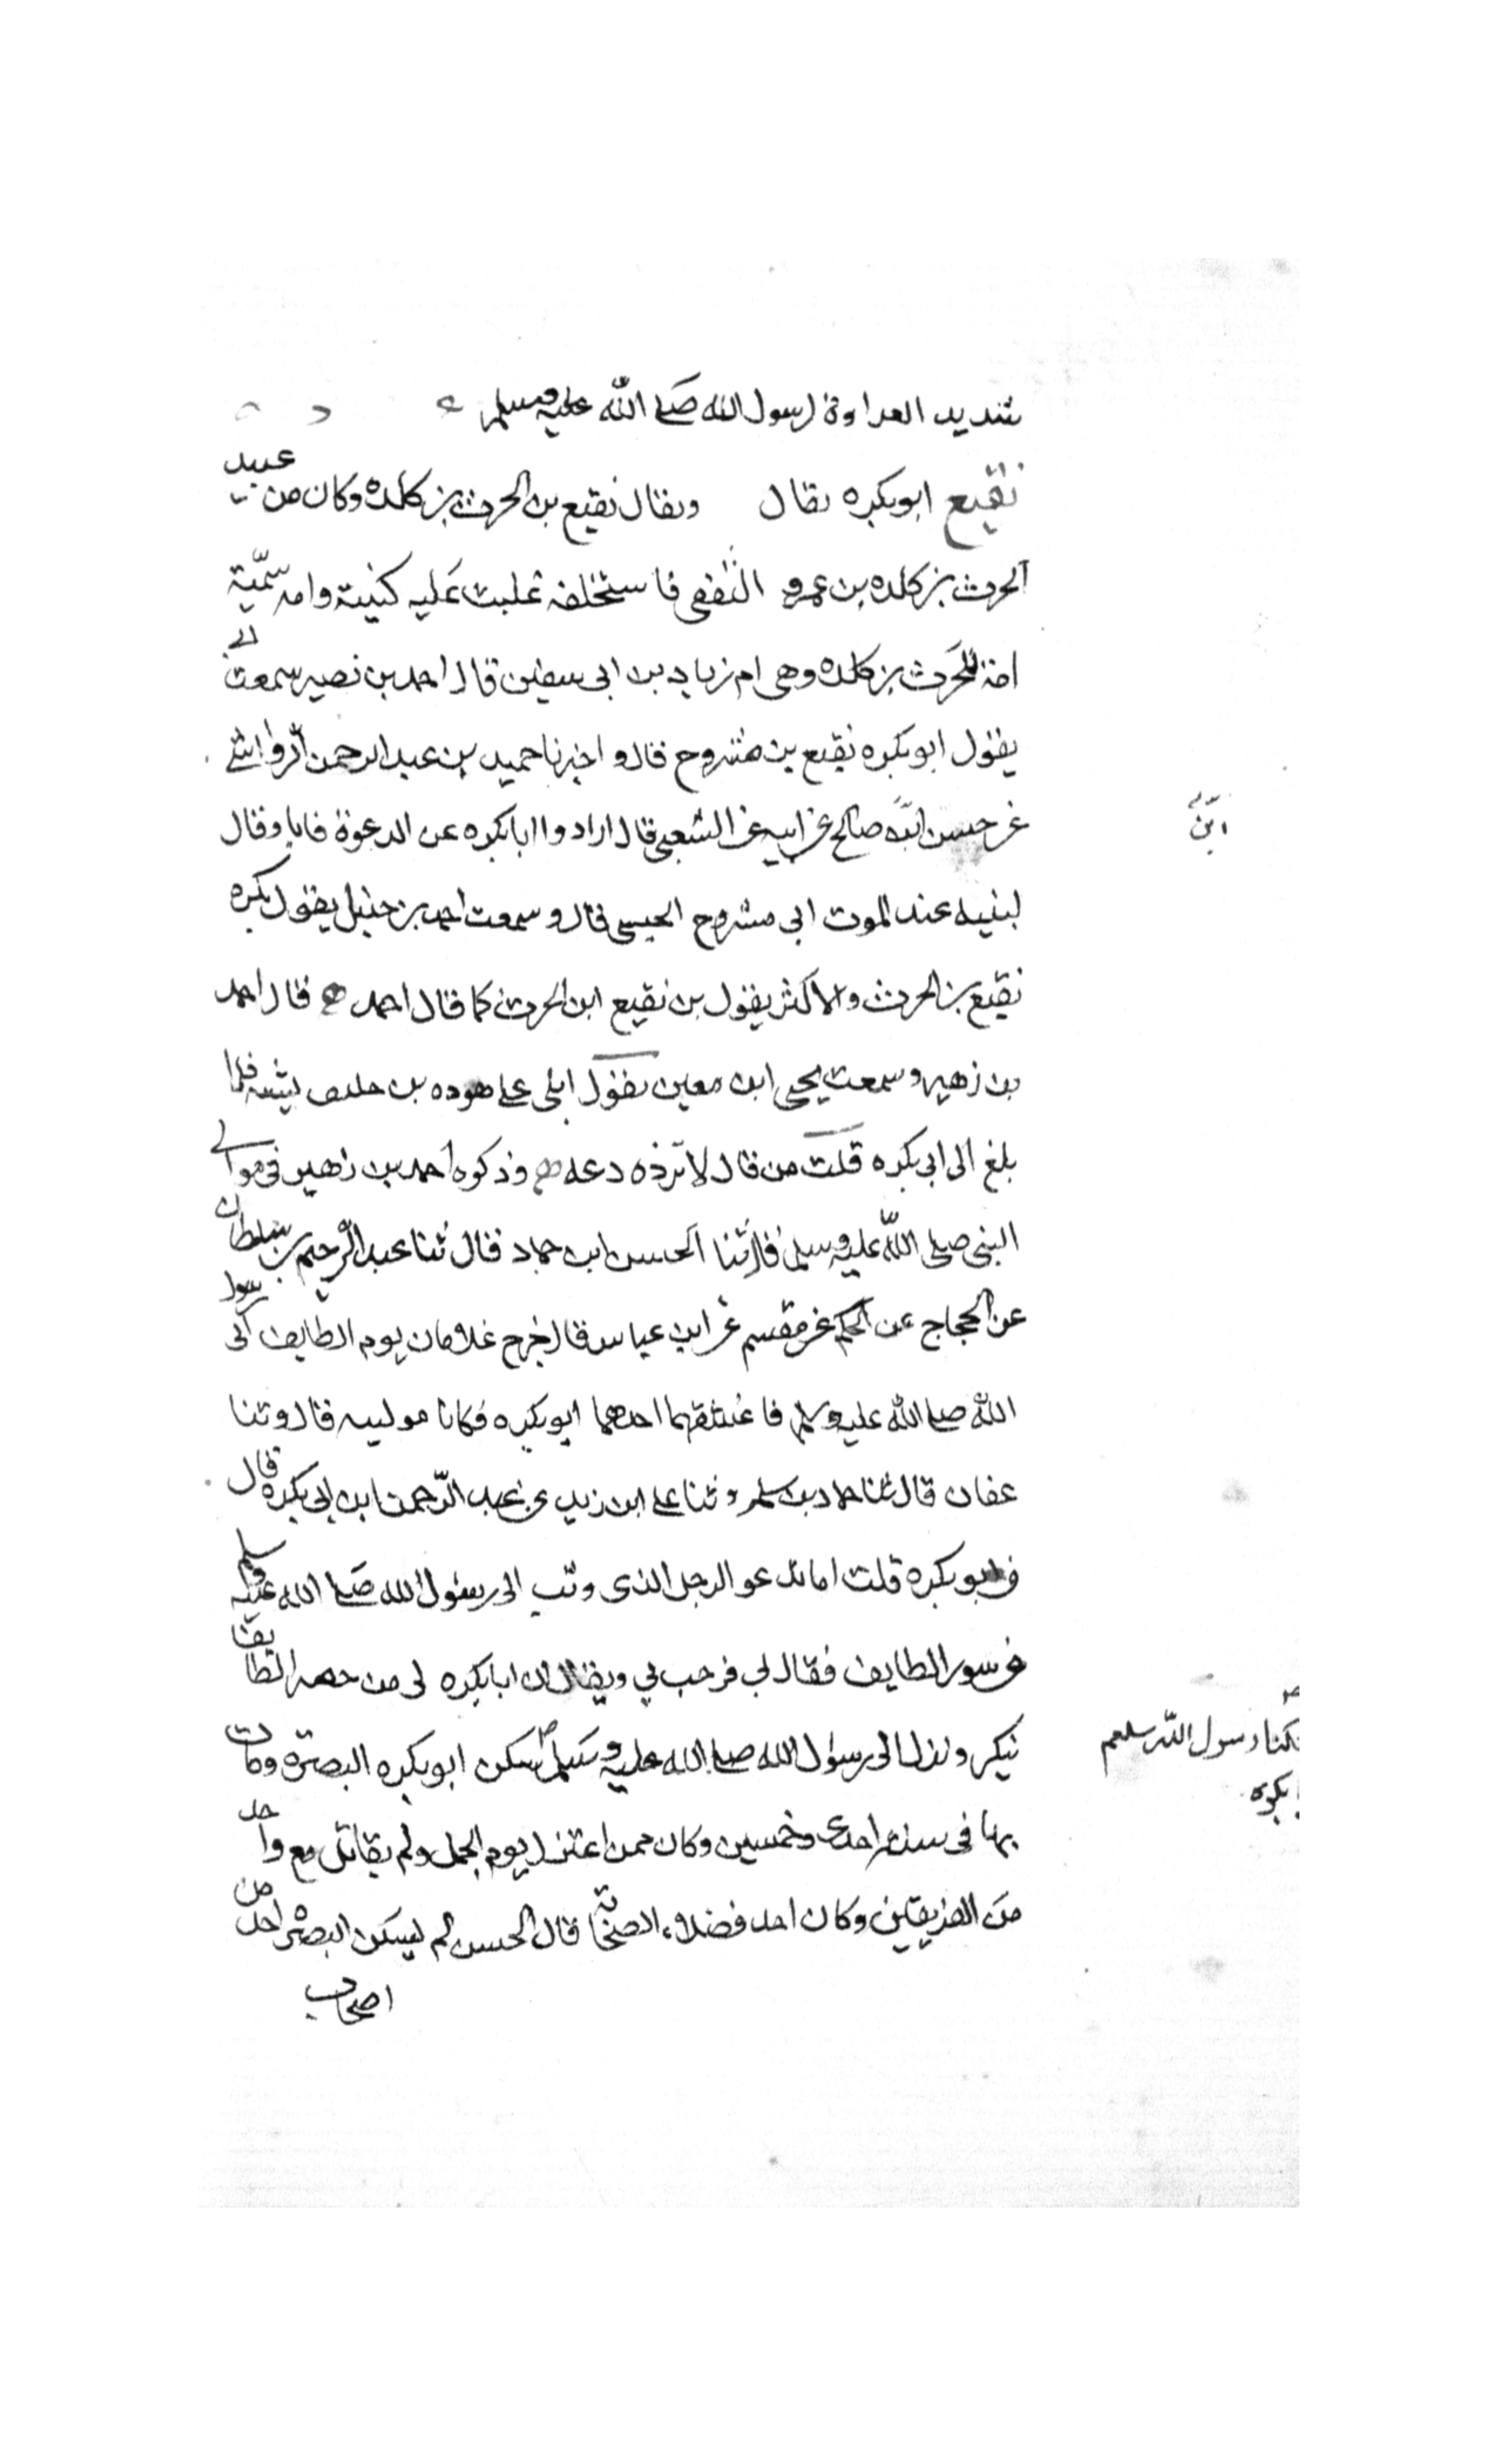 شديد العداوة لرسول الله صلى الله عليه وسلم
نقيع ابوبكره يقال ويقال نقيع بن الحرث بن كلده وكان من عبيد
الحرث بن كلده بن عمرو الثقفى فاستخلفه غلبت عليه كنيته وامه سميّة
امة للحرث بن كلده وهى ام زياد بن ابى سفين قال احمد بن نصير سمعت
يقول ابوبكره نقيع بن مشروح قال واخبرنا حميد بن عبدالرحمن الرواشى
عن حسن ابن صالح عن ابيه عن الشعبى قال ارادوا ابابكره عن الدعوة فابا وقال
لبنيه عند الموت ابى مشروح الحبسى قال وسمعت احمد بن حنبل يقول بكره
نقيع بن الحرث والاكثر يقول بن نقيع ابن الحرث كما قال احمد قال احمد
بن زهير وسمعت يحيى ابن معين يقول املى على هوده بن حليف فلما
بلغ الى ابى بكره قلت من قال لا ترده دعه وذكره احمد بن زهير فى موالى
النبى صلى الله عليه وسلم قال ثنا الحسن ابن حماد قال ثنا عبدالرحيم بن سلطان
عن الحجاج عن الحكم عن مقسم عن ابن عباس قال خرج غلامان يوم الطايف الى رسول
الله صلى الله عليه وسلم فاعتقهما احدهما ابوبكره فكانا موليه قال وثنا
عفان قال ثنا حماد بن سلمه وثنا على ابن زيد عن عبد الرّحمن ابن ابى بكره قال
ابوبكره قلت اما الرجل الذى وثب الى رسول الله صلى الله عليه وسلم
من سور الطايف فقال لى فرحب بي ويقال ان ابابكره لى من حصن الطايف
ونزل الى رسول الله صلى الله عليه وسلم سكن ابوبكره البصرة ومات
بها فى سنة احدى وخمسين وكان ممن اعتزل يوم الجمل ولم يقاتل مع واحد
من الفريقين وكان احد فضلاء الصحابة قال الحسن لم يسكن البصره احد من
اصحاب
ابن
رسول الله سلعم
بكره